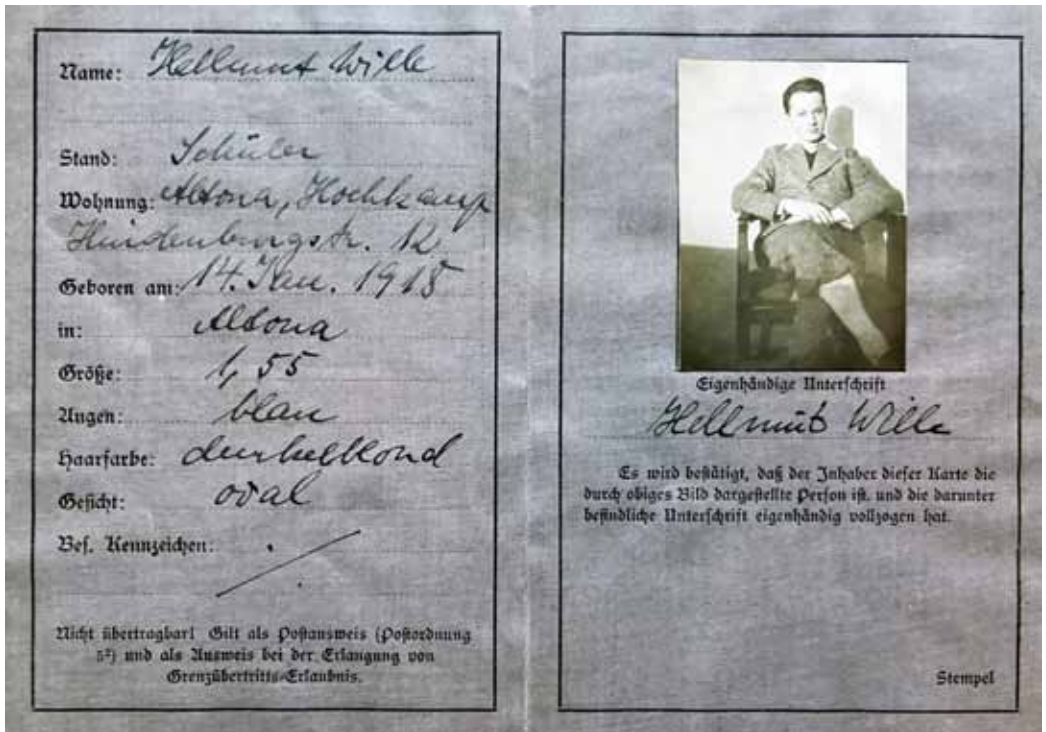 Name: Hellmut Wille
Stand: Schüler
Wohnung: Altona, Hochkamp
Hindenburgstr. 12
Geboren am: 14. Jan. 1918
in: Altona
Größe: 1,55
Augen: blau
Haarfarbe: dunkelblond
Gesicht: oval
Bes. Kennzeichen: ·/·
Nicht übertragbar! Gilt als Postausweis (Postordnung
5²) und als Ausweis bei der Erlangung von
Grenzübertritts-Erlaubnis.
Eigenhändige Unterschrift
Hellmut Wille
Es wird bestätigt, daß der Inhaber dieser Karte die
durch obiges Bild dargestellte Person ist, und die darunter
befindliche Unterschrift eigenhändig vollzogen hat.
Stempel